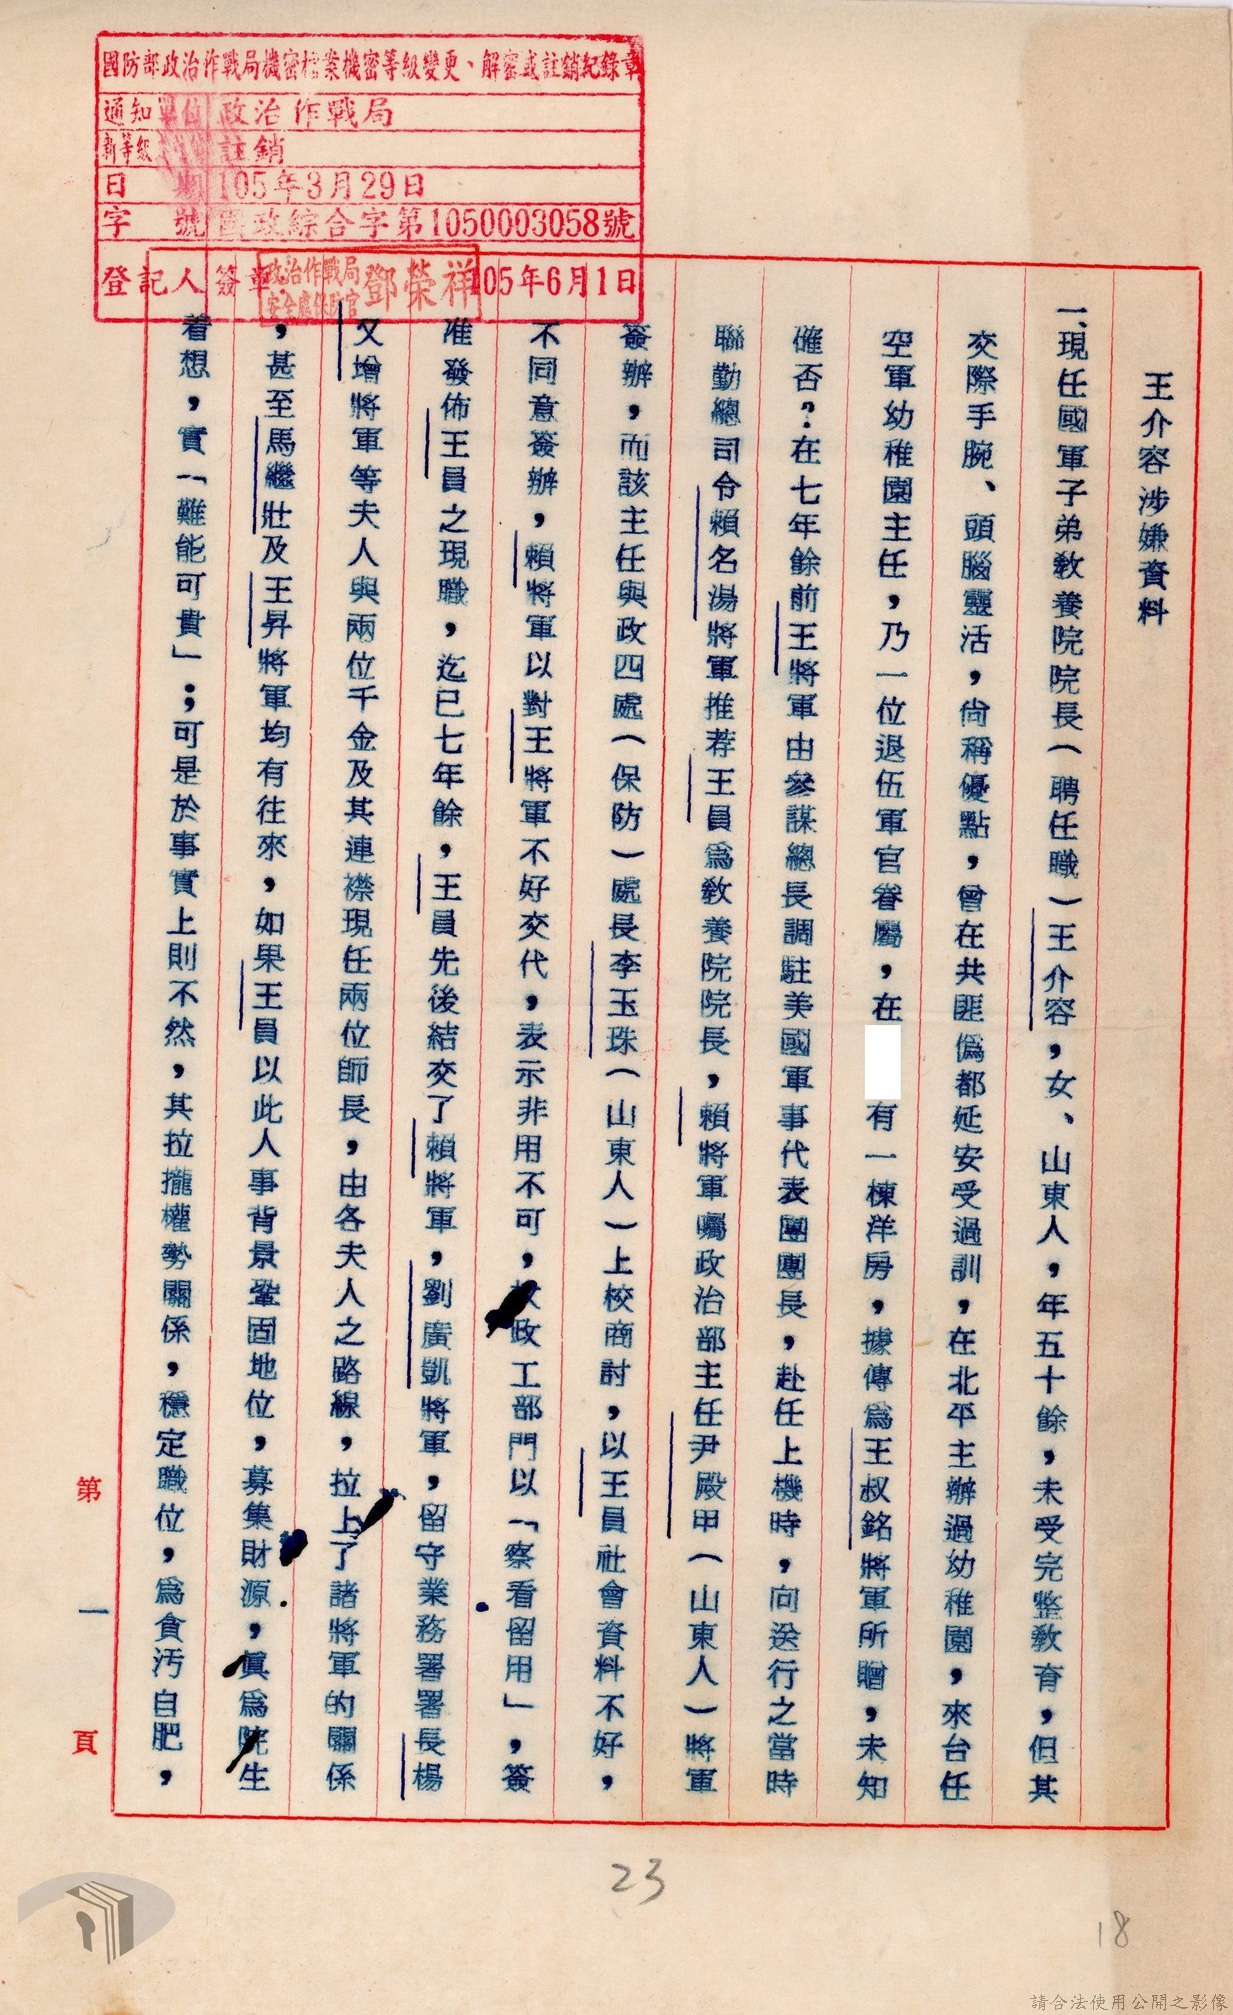 國防部政治作戰局機密檔案機密等級變更、解密或註銷紀錄章
通知單位 政治作戰局
新等級 註銷
日期 105年3月29日
字號 國政綜合字第1050003058號
登記人簽章 政治作戰局安全處保防官 鄧榮祥 105年6月1日
王介容涉嫌資料
一、現任國軍子弟教養院院長(聘任職)王介容,女、山東人,年五十餘,未受完整教育,但其
交際手腕、頭腦靈活,尚稱優點,曾在共匪偽都延安受過訓,在北平主辦過幼稚園,來台任
空軍幼稚園主任,乃一位退伍軍官眷屬,在 有一棟洋房,據傳為王叔銘將軍所贈,未知
確否?在七年餘前王將軍由參謀總長調駐美國軍事代表團團長,赴任上機時,向送行之當時
聯勤總司令賴名湯將軍推荐王員為教養院院長,賴將軍囑政治部主任尹殿甲(山東人)將軍
簽辦,而該主任與政四處(保防)處長李玉珠(山東人)上校商討,以王員社會資料不好,
不同意簽辦,賴將軍以對王將軍不好交代,表示非用不可,故政工部門以「察看留用」,簽
准發佈王員之現職,迄已七年餘,王員先後結交了賴將軍,劉廣凱將軍,留守業務署署長楊
又增將軍等夫人與兩位千金及其連襟現任兩位師長,由各夫人之路線,拉上了諸將軍的關係
,甚至馬繼壯及王昇將軍均有往來,如果王員以此人事背景鞏固地位,募集財源,真為院生
着想,實「難能可貴」;可是於事實上則不然,其拉攏權勢關係,穩定職位,為貪污自肥,
第一頁
23
18
請合法使用公開之影像